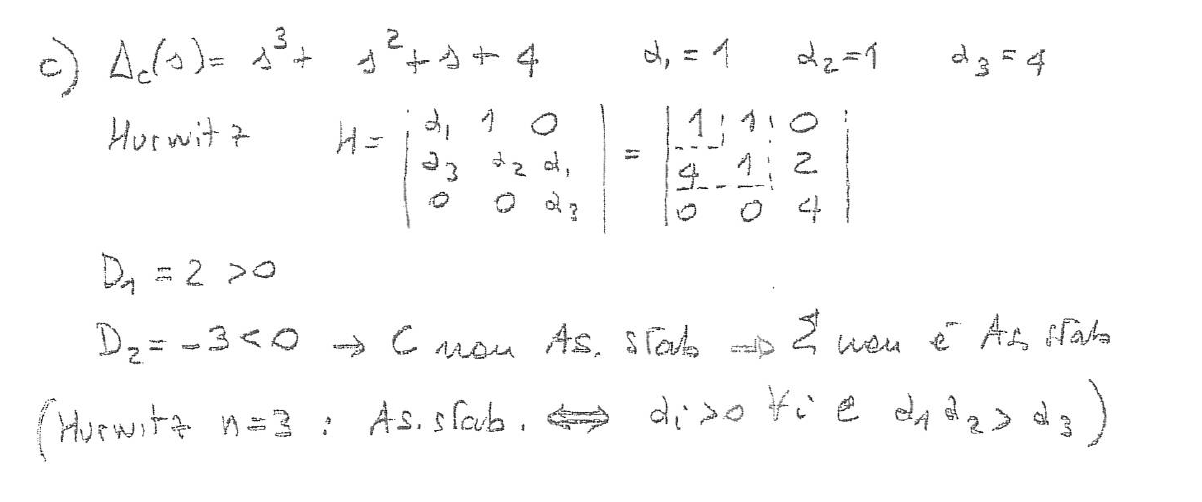 c) Δc(s) = s³ + s² + s + 4   α₁ = 1   α₂ = 1   α₃ = 4
Hurwitz   H = | α₁ 1 0 | = | 1 1 0 |
| α₃ α₂ α₁ |   | 4 1 2 |
| 0 0 α₃ |   | 0 0 4 |
D₁ = 2 > 0
D₂ = -3 < 0 → C non As. stab ⇒ Σ non è As stab
(Hurwitz n=3 : As. stab. ⟺ αi > 0 ∀i e α₁ α₂ > α₃)